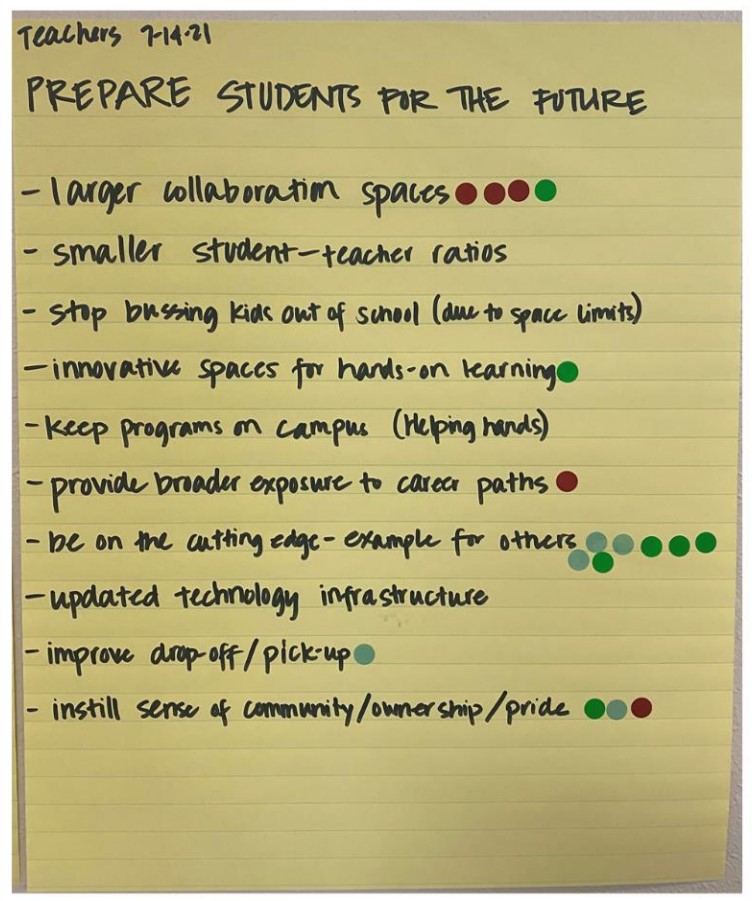 Teachers 7-14-21
PREPARE STUDENTS FOR THE FUTURE
- larger collaboration spaces
- smaller student-teacher ratios
- stop bussing kids out of school (due to space limits)
- innovative spaces for hands-on learning
- keep programs on campus (Helping hands)
- provide broader exposure to career paths
- be on the cutting edge - example for others
- updated technology infrastructure
- improve drop-off/pick-up
- instill sense of community/ownership/pride